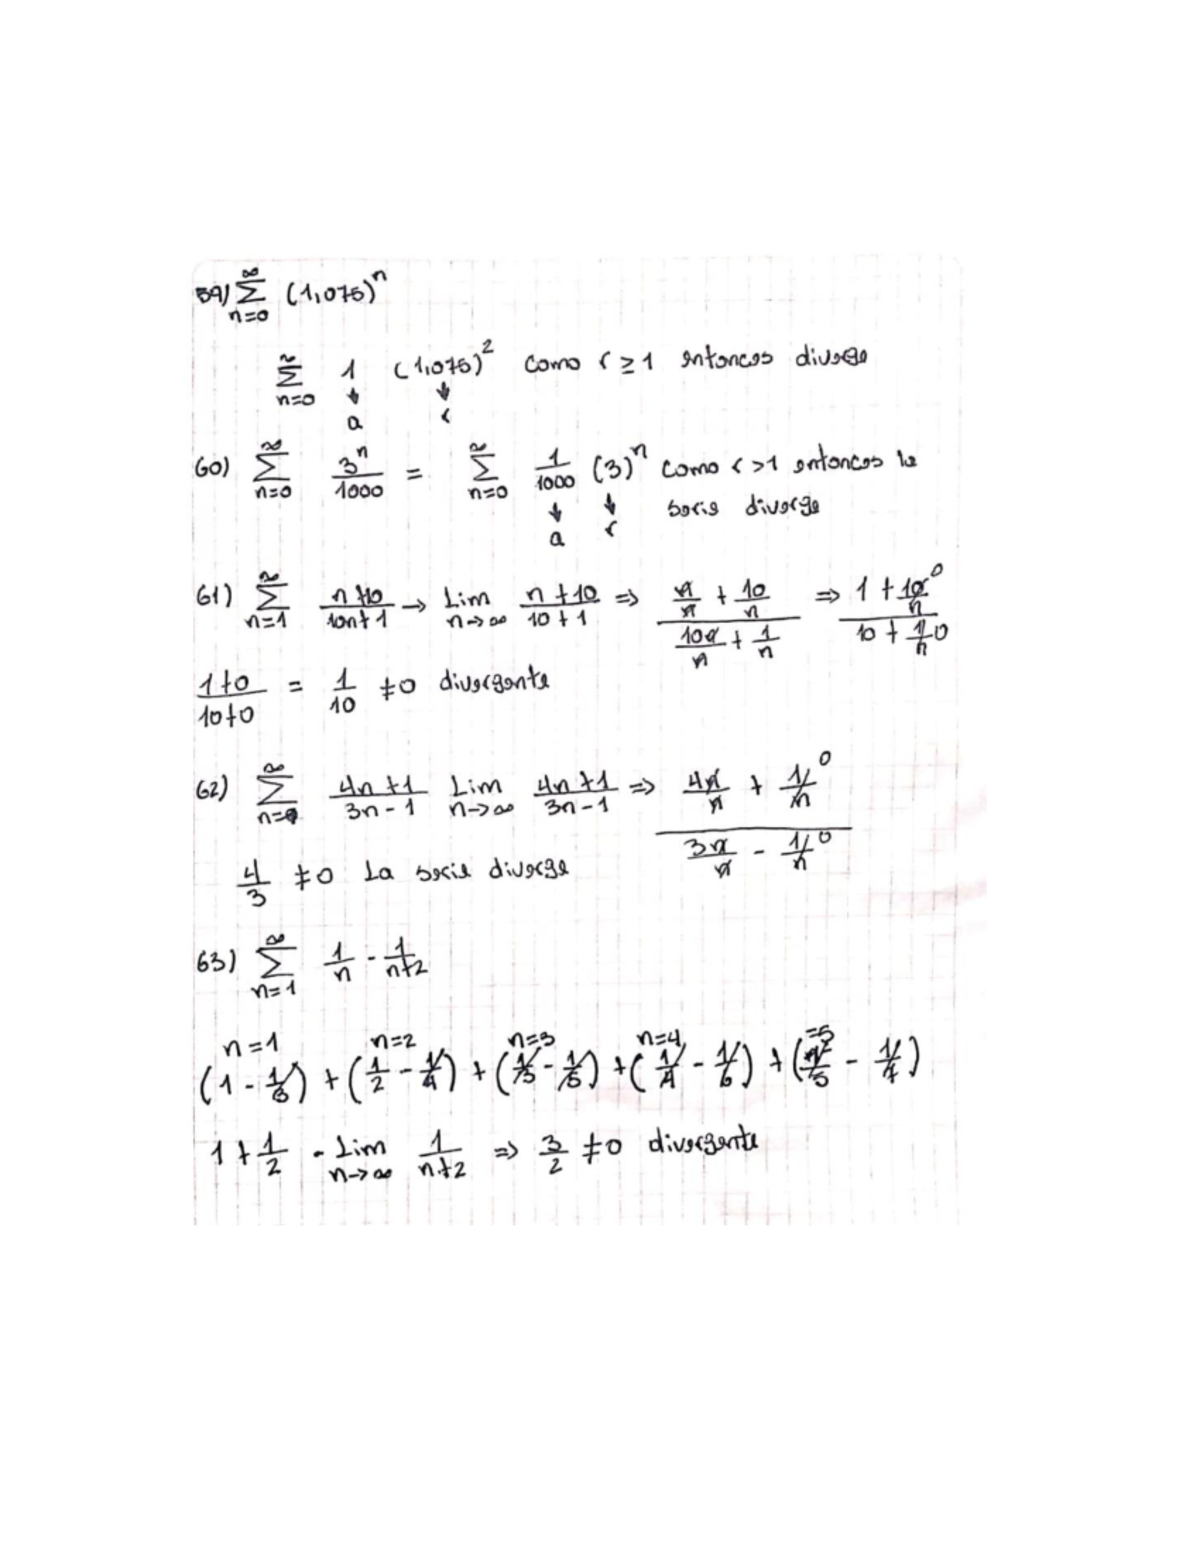 59) ∞ Σ n=0 (1,075)^n
∞ Σ n=0 1 (1,075)^2 como r ≥ 1 entonces diverge
↓ ↓
a r
60) ∞ Σ n=0 3^n/1000 = ∞ Σ n=0 1/1000 (3)^n como r >1 entonces la
↓ ↓ serie diverge
a r
61) ∞ Σ n=1 n+10/10n+1 → Lim n→∞ n+10/10+1 ⇒ (n/n + 10/n)/(10n/n + 1/n) ⇒ (1 + 10/n^0)/(10 + 1/n 0)
1+0/10+0 = 1/10 ≠0 divergente
62) ∞ Σ n=0 4n+1/3n-1 Lim n→∞ 4n+1/3n-1 ⇒ (4n/n + 1/n^0)/(3n/n - 1/n^0)
4/3 ≠0 La serie diverge
63) ∞ Σ n=1 1/n - 1/n+2
n=1 n=2 n=3 n=4 =5
(1 - 1/3) + (1/2 - 1/4) + (1/3 - 1/5) + (1/4 - 1/6) + (1/5 - 1/7)
1 + 1/2 - Lim n→∞ 1/n+2 ⇒ 3/2 ≠0 divergente